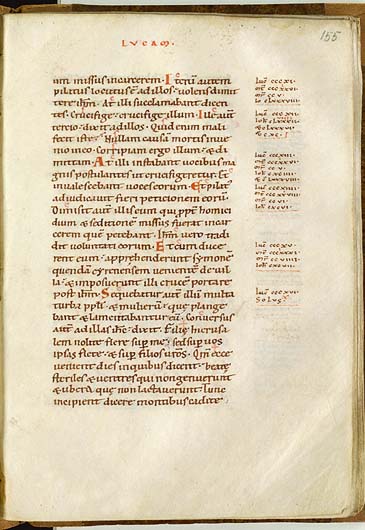 LUCAM.
155
um missus incarcerem. Iterum autem
pilatus locutus ÷ adillos. volens dimit
tere ihm̄. At illi succlamabant dicen
tes. Crucifige. crucifige illum. Ille aut̄
tercio. dixit adillos. Quid enim mali
fecit iste? Nullam causā mortis inve
nio in eo. Corripiam ergo illum. & di
mittam. At illi instabant vocibus ma
gnis postulantes ut crucifigeretur. Et
invalescebant voces eorum. Et pilat᷒
adiudicavit fieri peticionem eorū.
Dimisit aut̄ illis eum qui ꝓpt̄ homici
dium & seditionem missus fuerat incar
cerem quem petebant. Ihm̄ vero tradi
dit voluntati eorum. Et cum duce
rent eum. apprehenderunt symone᷒
quendā cyrenensem veniente᷒ de vil
la. & imposuerunt illi crucem portare
post ihm̄. Sequebatur aut̄ illū multa
turba ppl̄i. & mulierū. quę plange
bant & lamentabantur eū. Conversus
aut̄ ad illas ihc̄. dixit. Filię hierusa
lem nolite flere sup̄ me. sed sup̄ vos
ipsas flete. & sup̄ filios vr̄os. Qm̄ ecce
venient dies in quibus dicent. beatę
steriles & ventres qui non genuerunt.
& ubera quę non lactaverunt. Tunc
incipient dicere montibus cadite
luc̄ cccxi.
luc̄ cccxv.
luc̄ cccxvi.
Solus.